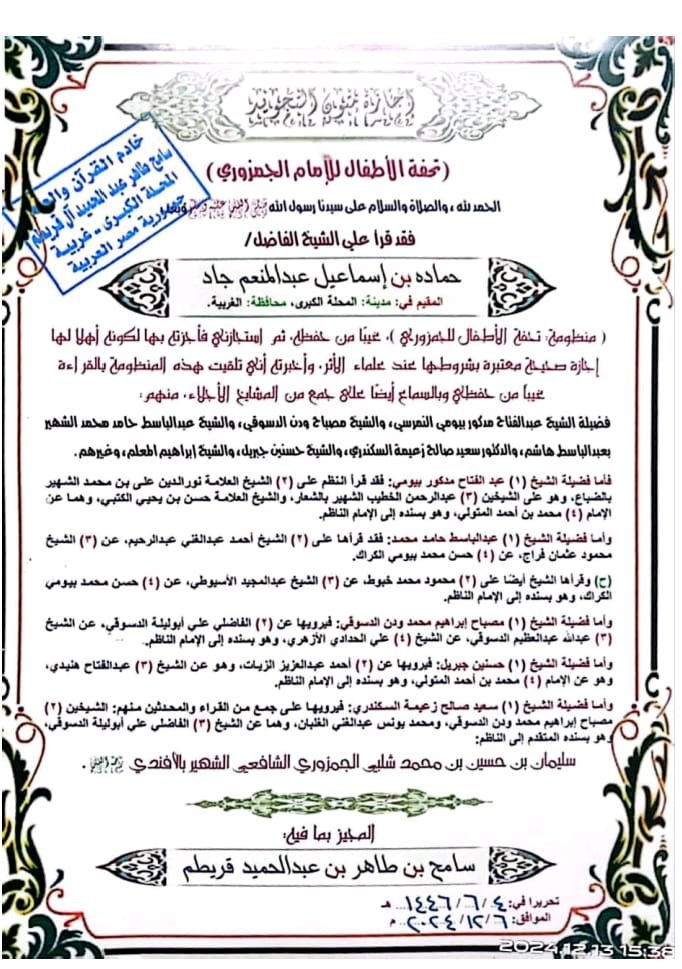 إجازة متون التجويد
( تحفة الأطفال للإمام الجمزوري )
خادم القرآن والسنة
سامح طاهر عبد الحميد آل قريطم
المحلة الكبرى - غربية
جمهورية مصر العربية
الحمد لله، والصلاة والسلام على سيدنا رسول الله وبعد
فقد قرأ علي الشيخ الفاضل/
حماده بن إسماعيل عبدالمنعم جاد
المقيم في: مدينة: المحلة الكبرى، محافظة: الغربية.
( منظومة: تحفة الأطفال للجمزوري )، غيبًا من حفظه، ثم استجازني فأجزته بها لكونه أهلا لها
إجازة صحيحة معتبرة بشروطها عند علماء الأثر، وأخبرته أني تلقيت هذه المنظومة بالقراءة
غيبًا من حفظي وبالسماع أيضًا على جمع من المشايخ الأجلاء، منهم:
فضيلة الشيخ عبدالفتاح مدكور بيومي النمرسي، والشيخ مصباح ودن الدسوقي، والشيخ عبدالباسط حامد محمد الشهير
بعبدالباسط هاشم، والدكتور سعيد صالح زعيمة السكندري، والشيخ حسنين جبريل، والشيخ إبراهيم المعلم، وغيرهم.
فأما فضيلة الشيخ (١) عبد الفتاح مدكور بيومي: فقد قرأ النظم على (٢) الشيخ العلامة نورالدين علي بن محمد الشهير
بالضباع، وهو على الشيخين (٣) عبدالرحمن الخطيب الشهير بالشعار، والشيخ العلامة حسن بن يحيي الكتبي، وهما عن
الإمام (٤) محمد بن أحمد المتولي، وهو بسنده إلى الإمام الناظم.
وأما فضيلة الشيخ (١) عبدالباسط حامد محمد: فقد قرأها على (٢) الشيخ أحمد عبدالغني عبدالرحيم، عن (٣) الشيخ
محمود عثمان فراج، عن (٤) حسن محمد بيومي الكراك.
(ح) وقرأها الشيخ أيضًا على (٢) محمود محمد خبوط، عن (٣) الشيخ عبدالمجيد الأسيوطي، عن (٤) حسن محمد بيومي
الكراك، وهو بسنده إلى الإمام الناظم.
وأما فضيلة الشيخ (١) مصباح إبراهيم محمد ودن الدسوقي: فيرويها عن (٢) الفاضلي علي أبوليلة الدسوقي، عن الشيخ
(٣) عبدالله عبدالعظيم الدسوقي، عن الشيخ (٤) علي الحدادي الأزهري، وهو بسنده إلى الإمام الناظم.
وأما فضيلة الشيخ (١) حسنين جبريل: فيرويها عن (٢) أحمد عبدالعزيز الزيات، وهو عن الشيخ (٣) عبدالفتاح هنيدي،
وهو عن الإمام (٤) محمد بن أحمد المتولي، وهو بسنده إلى الإمام الناظم.
وأما فضيلة الشيخ (١) سعيد صالح زعيمة السكندري: فيرويها على جمع من القراء والمحدثين منهم: الشيخين (٢)
مصباح إبراهيم محمد ودن الدسوقي، ومحمد يونس عبدالغني الغلبان، وهما عن الشيخ (٣) الفاضلي علي أبوليلة الدسوقي،
وهو بسنده المتقدم إلى الناظم:
سليمان بن حسين بن محمد شلبي الجمزوري الشافعي الشهير بالأفندي .
المجيز بما فيه:
سامح بن طاهر بن عبدالحميد قريطم
تحريرا في: ٤/ ٦/ ١٤٤٦ هـ
الموافق: ٦/ ١٢/ ٢٠٢٤ م
2024.12.13 15:38